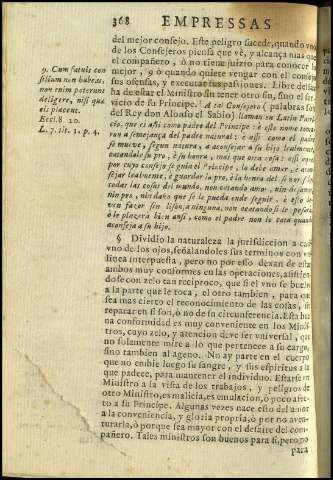 368 EMPRESSAS
del mejor consejo. Este peligro sucede, quando vno
de los Consejeros piensa que vè, y alcança mas que
el compañero, ò no tiene juizio para conocer lo
mejor, 9 ò quando quiere vengar con el consejo
sus ofensas, y executar sus passiones. Libre dellas
ha de estar el Ministro sin tener otro fin, sino el ser-
vicio de su Principe. A tal Consejero (palabras son
del Rey don Alonso el Sabio) llaman en Latin Patri-
cio, que es assi como padre del Principe: è este nome toma-
ron à semejança del padre natural: è assi como el padre
se mueve, segun natura, à aconsejar à su hijo lealmente,
catandole su pro, è su honra, mas que otra cosa: assi aquel
por cuyo consejo se guia el Principe, lo debe amar, è acon-
sejar lealmente, è guardar la pro, è la honra del señor sobre
todas las cosas del mundo, non catando amor, nin desamor,
nin pro, nin daño que se le pueda ende seguir, è esto de-
ven fazer sin lisonja ninguna, non catando si le pesarà,
ò le plazerà bien ansi, como el padre non lo cata quando
aconseja à su hijo.
§ Dividio la naturaleza la jurisdiccion a cada
vno de los ojos, señalandoles sus terminos con vna
linea interpuesta, pero no por esso dexan de estar
ambos muy conformes en las operaciones, assistien-
dose con zelo tan reciproco, que si el vno se buelve
a la parte que le toca, el otro tambien, para que
sea mas cierto el reconocimiento de las cosas, sin
reparar en si son, ò no de su circunferencia. Esta bue-
na conformidad es muy conveniente en los Minis-
tros, cuyo zelo, y atencion deve ser vniversal, que
no solamente mire a lo que pertenece a su cargo,
sino tambien al ageno. No ay parte en el cuerpo
que no embie luego su sangre, y sus espiritus a la
que padece, para mantener el individuo. Estarse vn
Ministro a la vista de los trabajos, y peligros de
otro Ministro, es malicia, es emulacion, ò poco afec-
to a su Principe. Algunas vezes nace esto del amor
a la conveniencia, y gloria propria, ò por no aven-
turarla, ò porque sea mayor con el desaire del com-
pañero. Tales ministros son buenos para si, pero no
para
9. Cum fatuis con
silium non habeas,
non enim poterunt
diligere, nisi quæ
eis placent.
Eccl. 8. 20.
L. 7. tit. 1. p. 4.